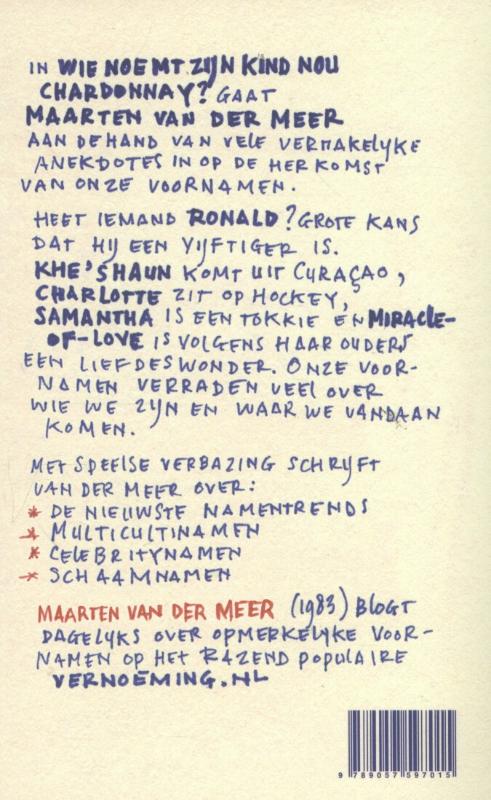 IN WIE NOEMT ZIJN KIND NOU
CHARDONNAY? GAAT
MAARTEN VAN DER MEER
AAN DE HAND VAN VELE VERMAKELIJKE
ANEKDOTES IN OP DE HERKOMST
VAN ONZE VOORNAMEN.
HEET IEMAND RONALD? GROTE KANS
DAT HIJ EEN VIJFTIGER IS.
KHE'SHAUN KOMT UIT CURAÇAO,
CHARLOTTE ZIT OP HOCKEY,
SAMANTHA IS EEN TOKKIE EN MIRACLE-
OF-LOVE IS VOLGENS HAAR OUDERS
EEN LIEFDESWONDER. ONZE VOOR-
NAMEN VERRADEN VEEL OVER
WIE WE ZIJN EN WAAR WE VANDAAN
KOMEN.
MET SPEELSE VERBAZING SCHRIJFT
VAN DER MEER OVER:
* DE NIEUWSTE NAMENTRENDS
* MULTICULTINAMEN
* CELEBRITYNAMEN
* SCHAAMNAMEN
MAARTEN VAN DER MEER (1983) BLOGT
DAGELIJKS OVER OPMERKELIJKE VOOR-
NAMEN OP HET RAZEND POPULAIRE
VERNOEMING.NL
9 789057 597015